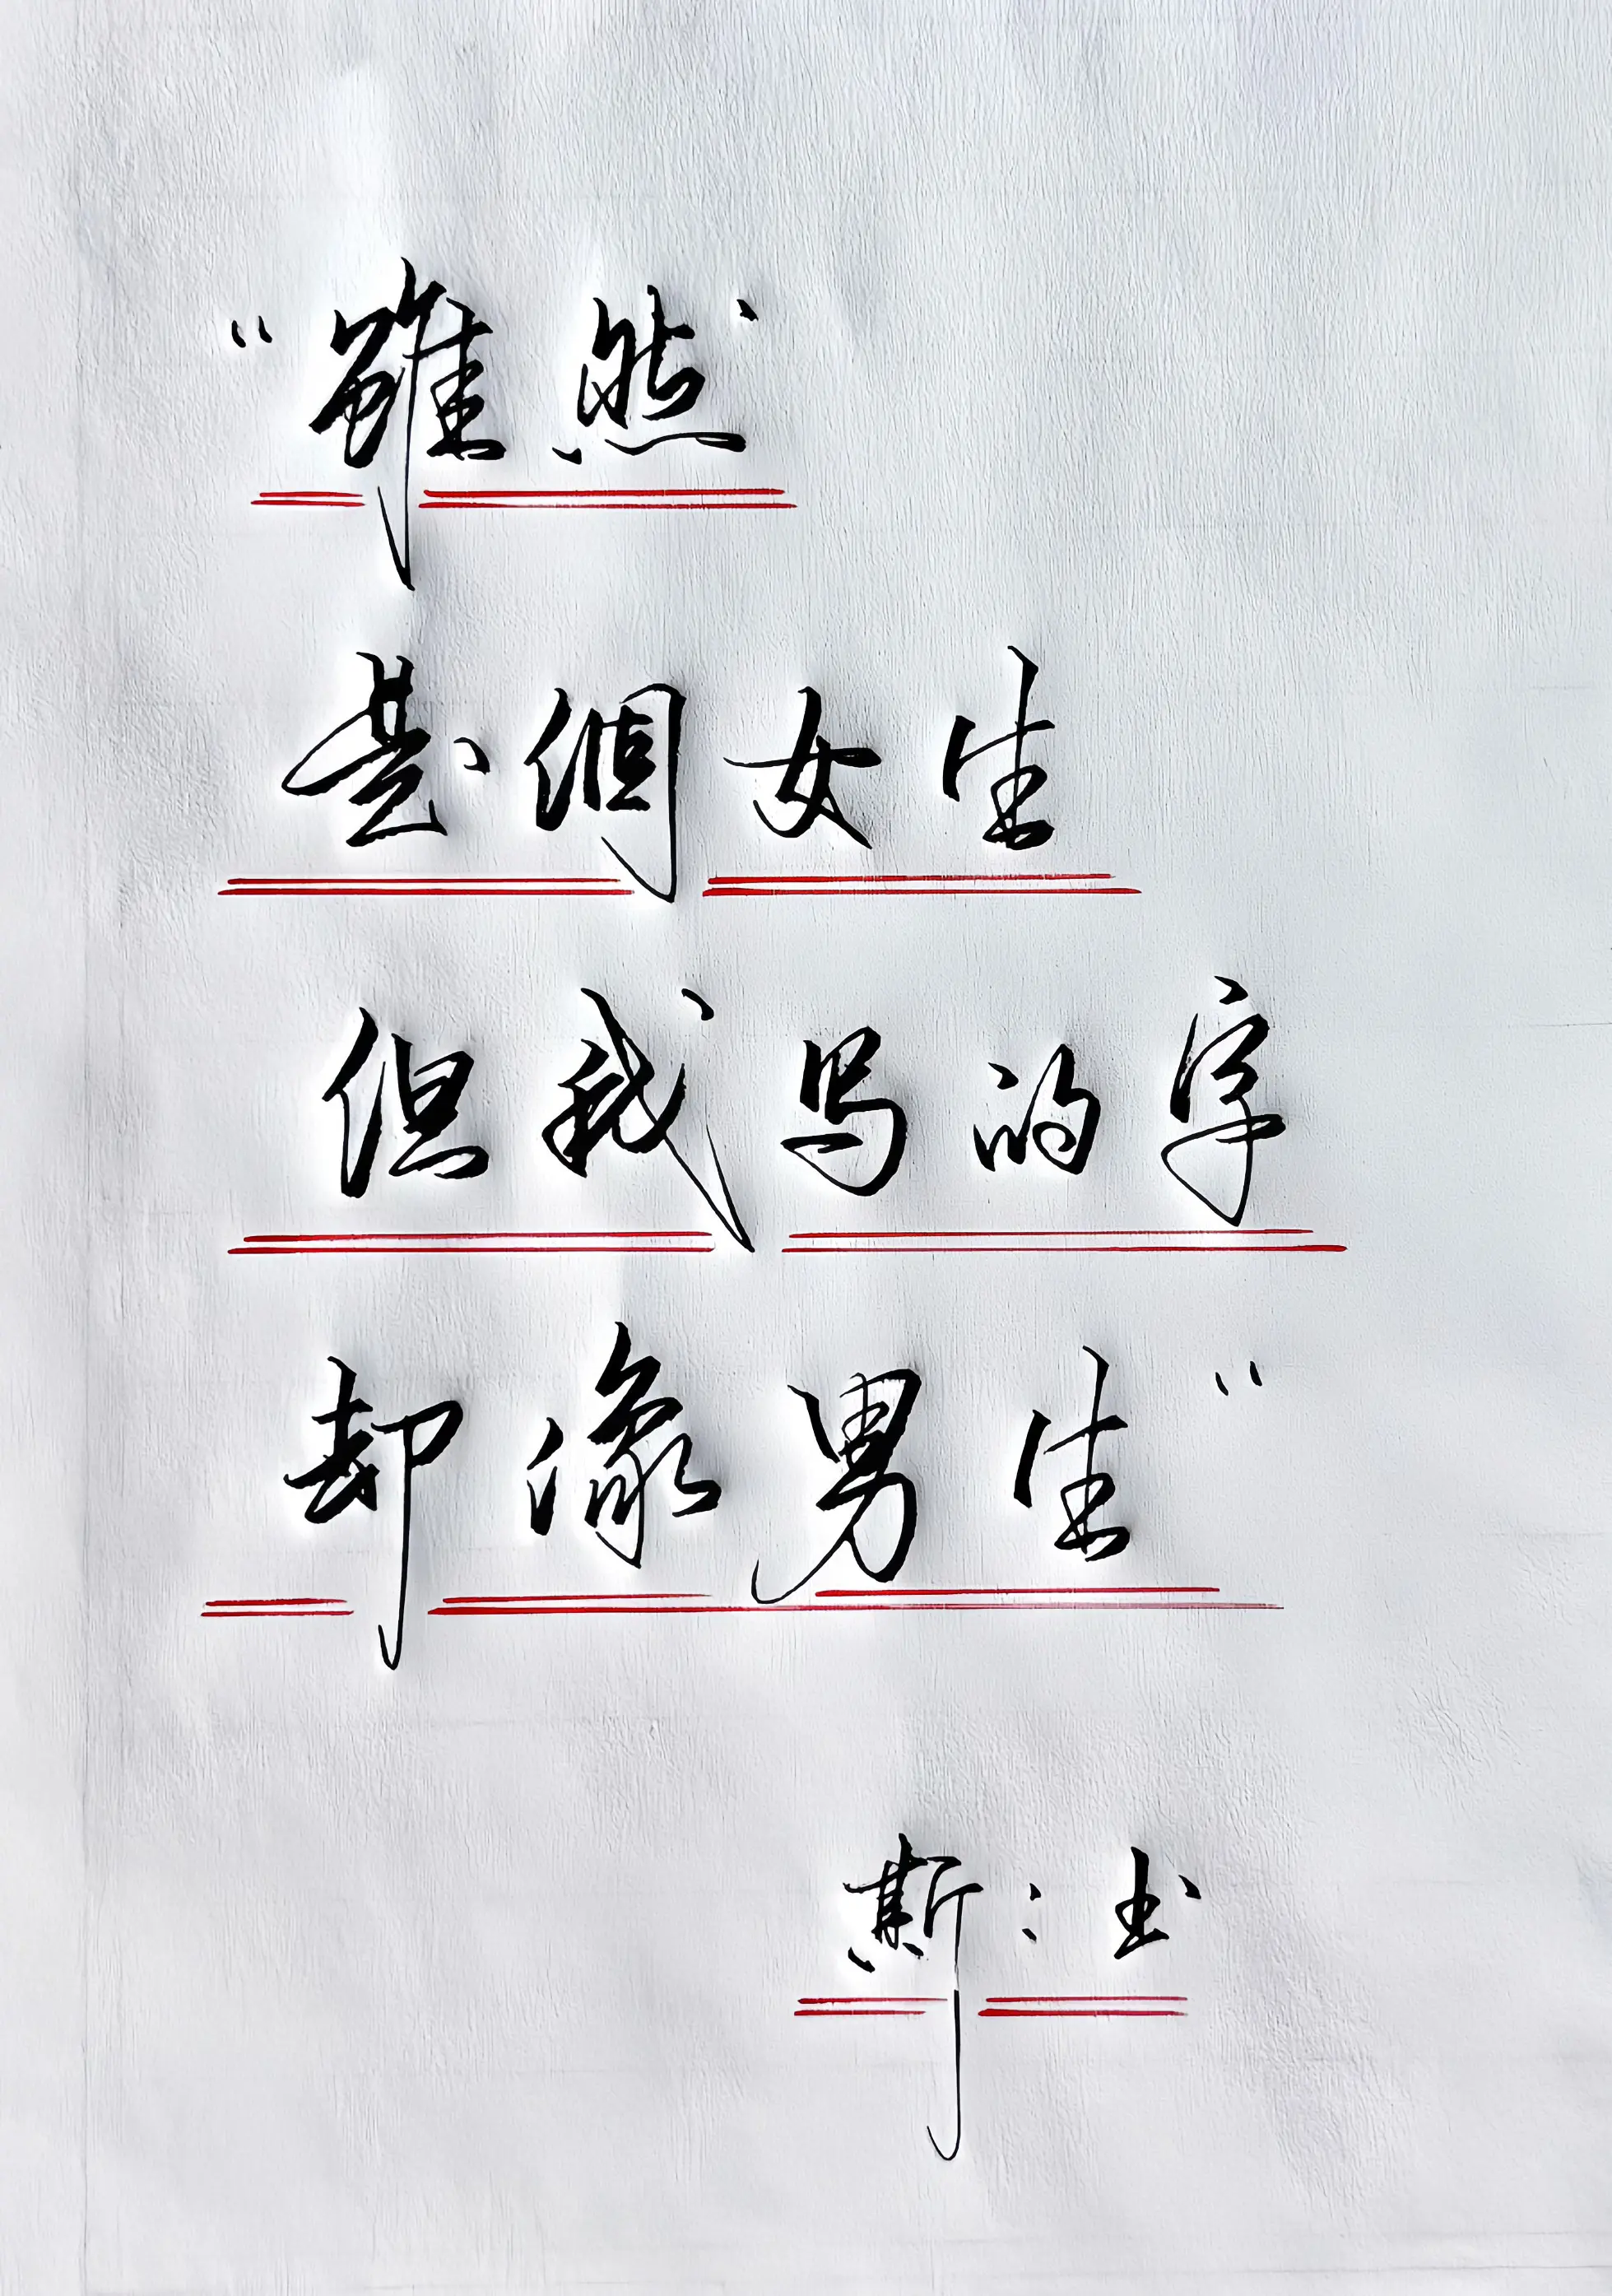 “雖然
是個女生
但我写的字
却像男生”
斯：书